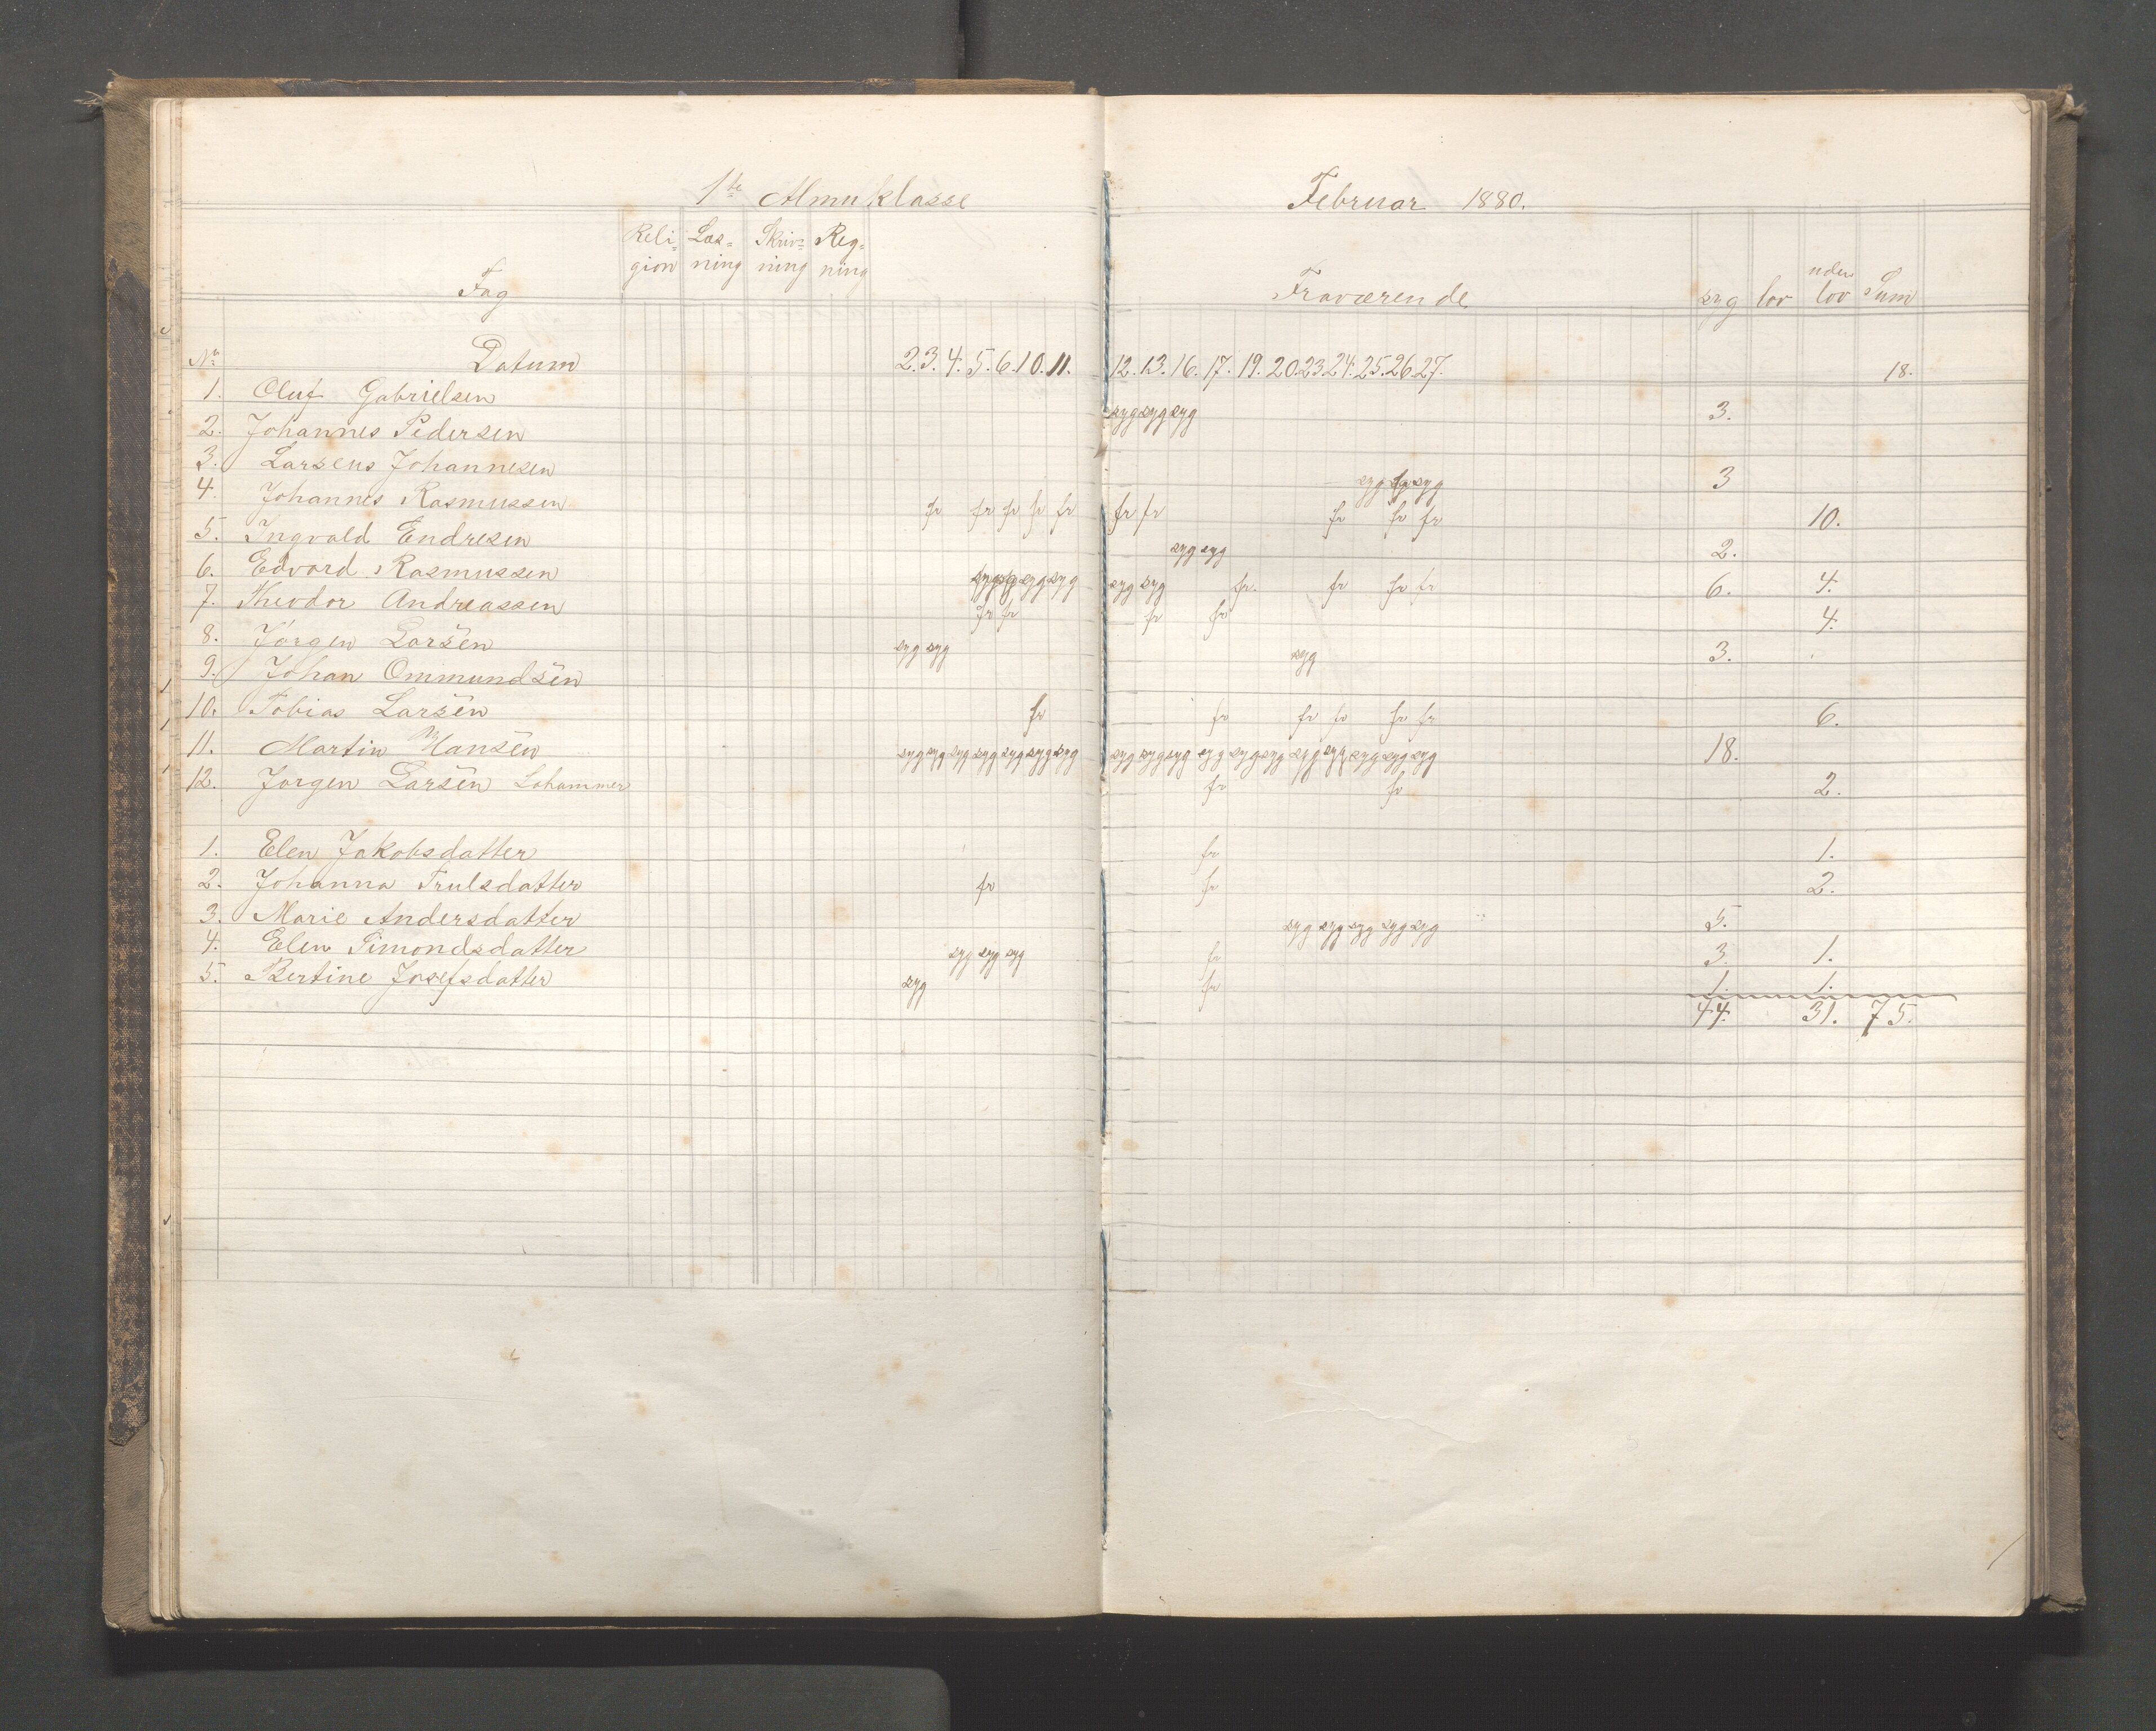 1ste Almuklasse Februar 1880.
Fag Reli=gion Læs=ning Skriv=ning Reg=ning Fraværende syg lov uden lov Sum
No Datum 2. 3. 4. 5. 6. 10. 11. 12. 13. 16. 17. 19. 20. 23. 24. 25. 26. 27. 18.
1. Oluf Gabrielsen syg syg syg 3.
2. Johannes Pedersen
3. Larsens Johannesen syg syg syg 3
4. Johannes Rasmussen fr fr fr fr fr fr fr fr fr fr 10.
5. Ingvald Endresen syg syg 2.
6. Edvard Rasmussen syg syg syg syg syg syg fr. fr fr fr 6. 4.
7. Theodor Andreassen fr fr fr fr 4.
8. Jørgen Larsen syg syg syg 3.
9. Johan Ommundsen
10. Tobias Larsen fr fr fr fr fr fr 6.
11. Martin Hansen syg syg syg syg syg syg syg syg syg syg syg syg syg syg syg syg syg syg 18.
12. Jørgen Larsen Lohammer fr fr 2.
1. Elen Jakobsdatter fr 1.
2. Johanna Trulsdatter fr fr 2.
3. Marie Andersdatter syg syg syg syg syg 5.
4. Elen Simondsdatter syg syg syg fr 3. 1.
5. Bertine Josefsdatter syg fr 1. 1.
44. 31. 75.